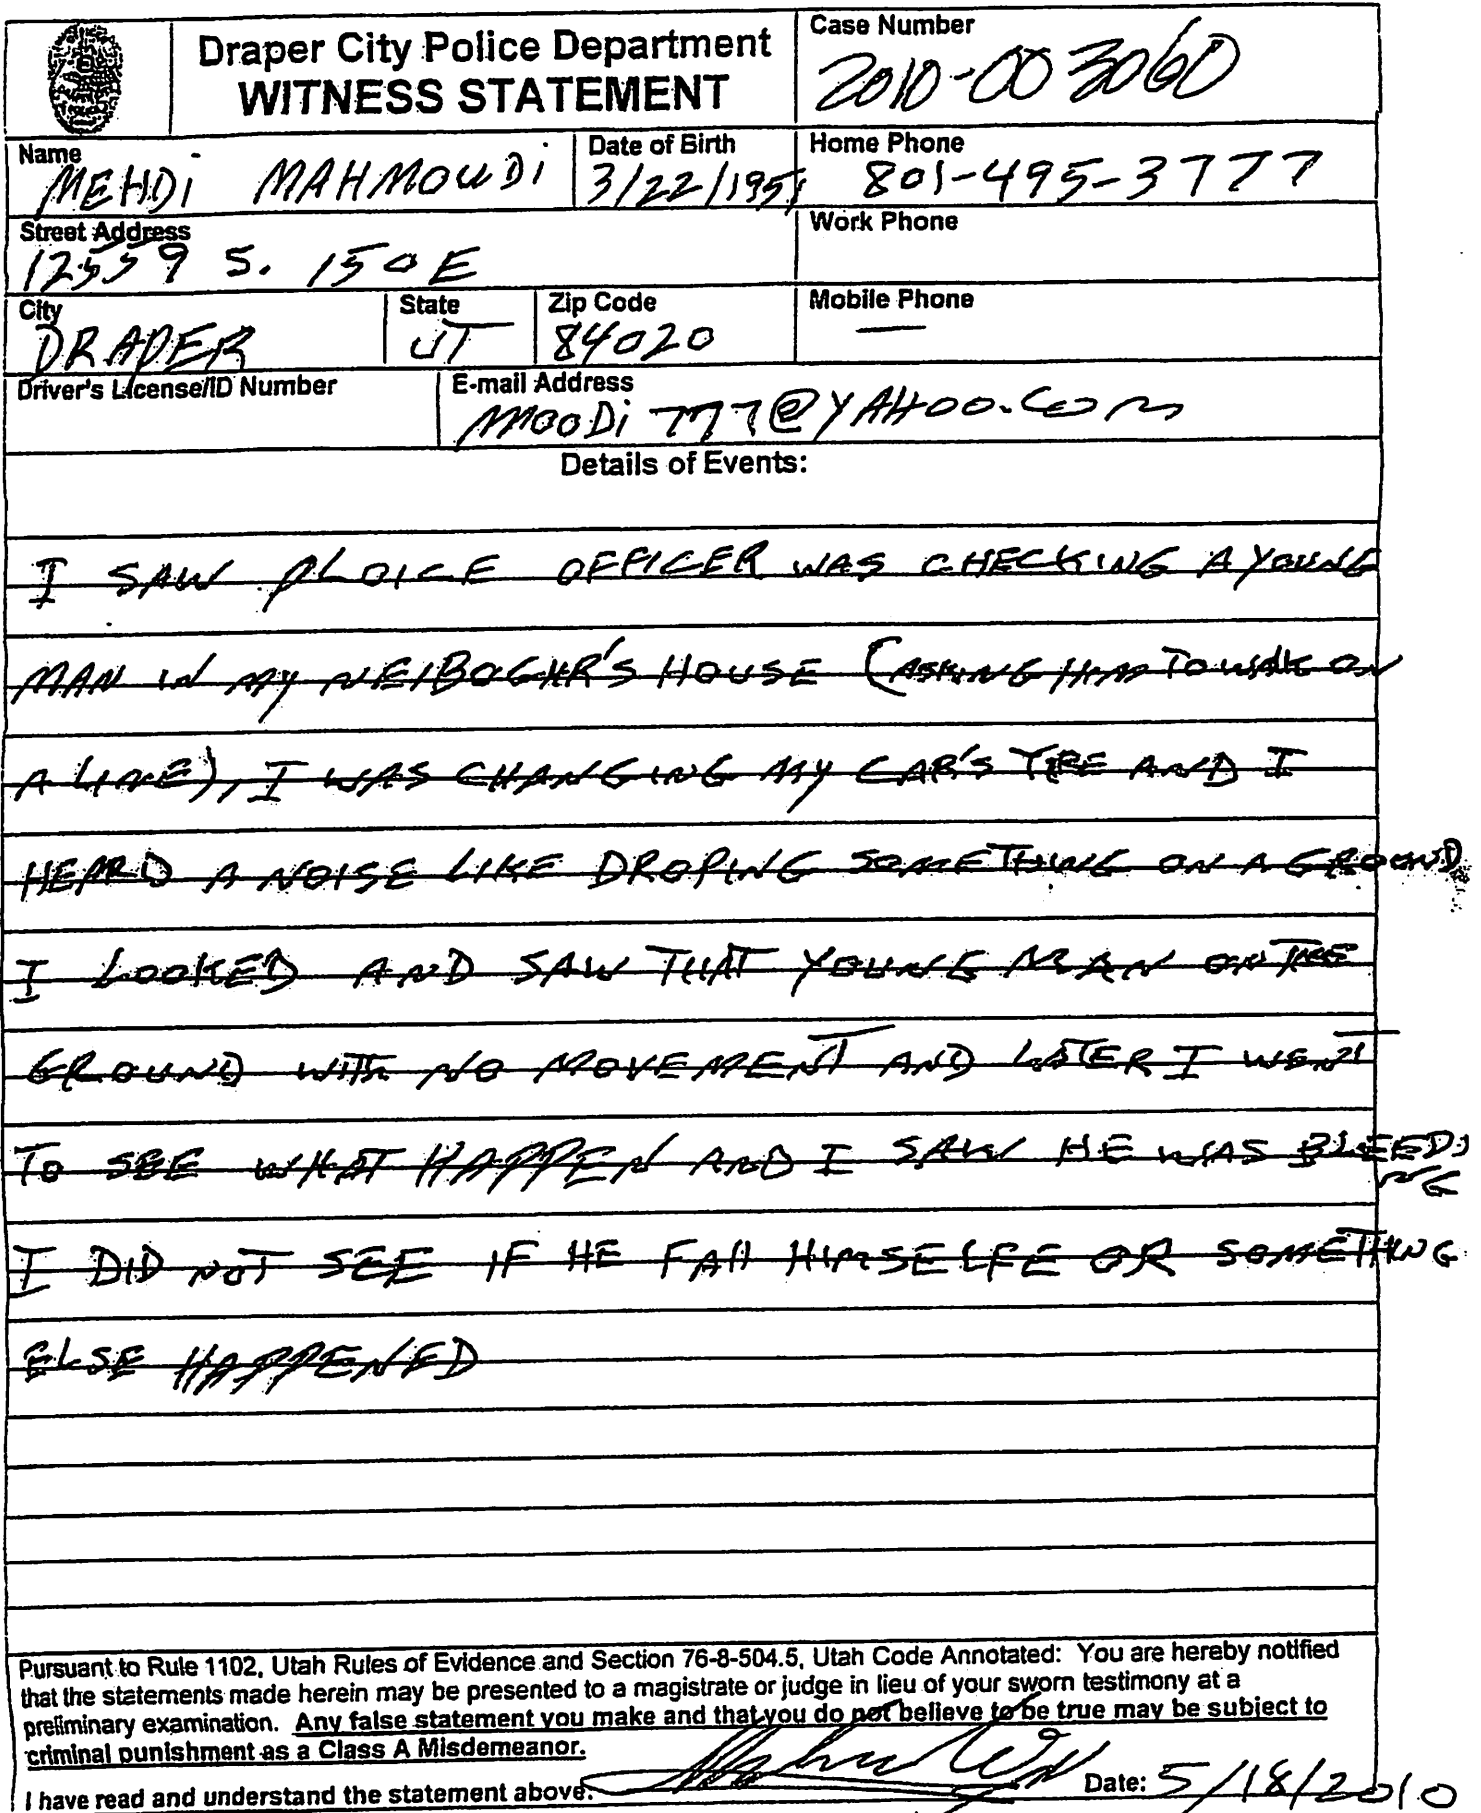 Draper City Police Department
WITNESS STATEMENT
Case Number
2010-003060
Name
MEHDI MAHMOUDI
Date of Birth
3/22/1951
Home Phone
801-495-3777
Street Address
12559 S. 150 E
Work Phone
City
DRAPER
State
UT
Zip Code
84020
Mobile Phone
—
Driver's License/ID Number
E-mail Address
MOODI777@YAHOO.COM
Details of Events:
I SAW PLOICE OFFICER WAS CHECKING A YOUNG
MAN IN MY NEIBOGHR'S HOUSE (ASKING HIM TO WALK ON
A LINE), I WAS CHANGING MY CAR'S TIRE AND I
HEARD A NOISE LIKE DROPING SOMETHING ON A GROUND
I LOOKED AND SAW THAT YOUNG MAN ON THE
GROUND WITH NO MOVEMENT AND LATER I WENT
TO SEE WHAT HAPPEN AND I SAW HE WAS BLEEDING
I DID NOT SEE IF HE FALL HIMSELFE OR SOMETHING
ELSE HAPPENED
Pursuant to Rule 1102, Utah Rules of Evidence and Section 76-8-504.5, Utah Code Annotated: You are hereby notified
that the statements made herein may be presented to a magistrate or judge in lieu of your sworn testimony at a
preliminary examination. Any false statement you make and that you do not believe to be true may be subject to
criminal punishment as a Class A Misdemeanor.
I have read and understand the statement above:
Date: 5/18/2010